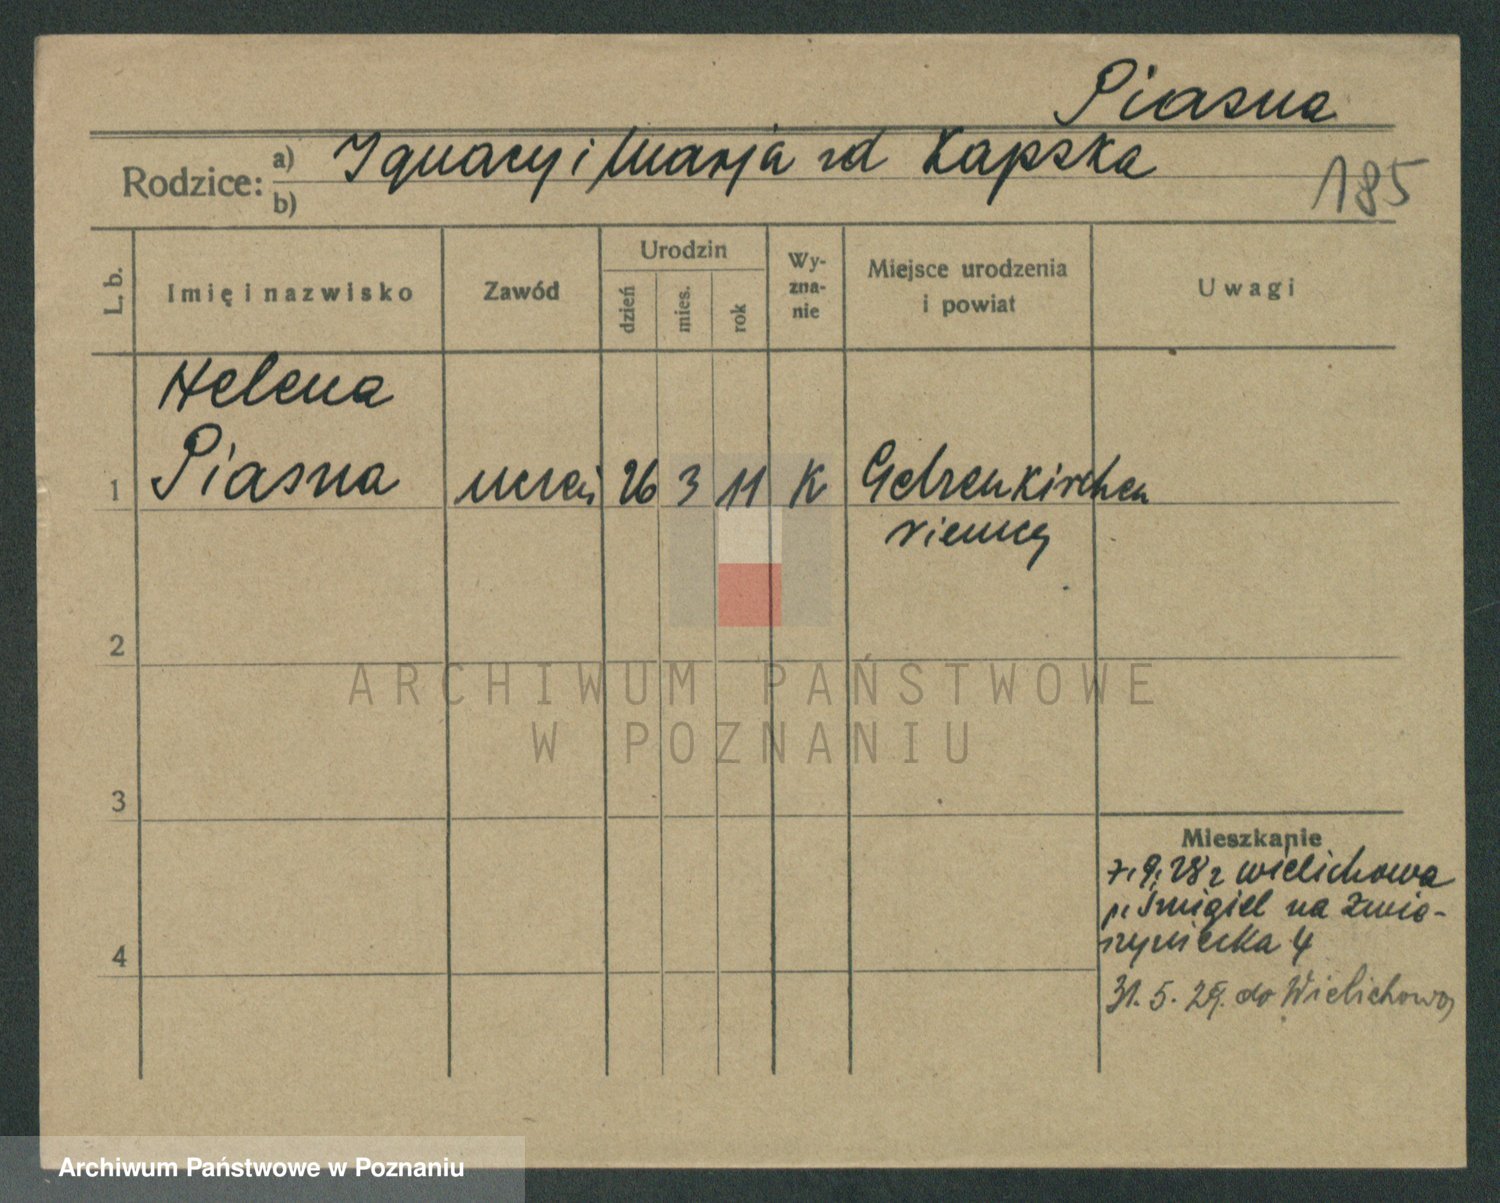 Piasna
Rodzice: a) Ignacy i Marja rd Kapska
b)
185
L. b.
Imię i nazwisko
Zawód
Urodzin
dzień
mies.
rok
Wy-
zna-
nie
Miejsce urodzenia
i powiat
Uwagi
Helena
1 Piasna uczeń 26 3 11 K Gelzenkirchen
niemcy
2
3
4
Mieszkanie
7.9.28 r Wielichowa
p. Śmigiel na Zwie-
rzyniecka 4
31.5.29. do Wielichowa
ARCHIWUM PAŃSTWOWE
W POZNANIU
Archiwum Państwowe w Poznaniu